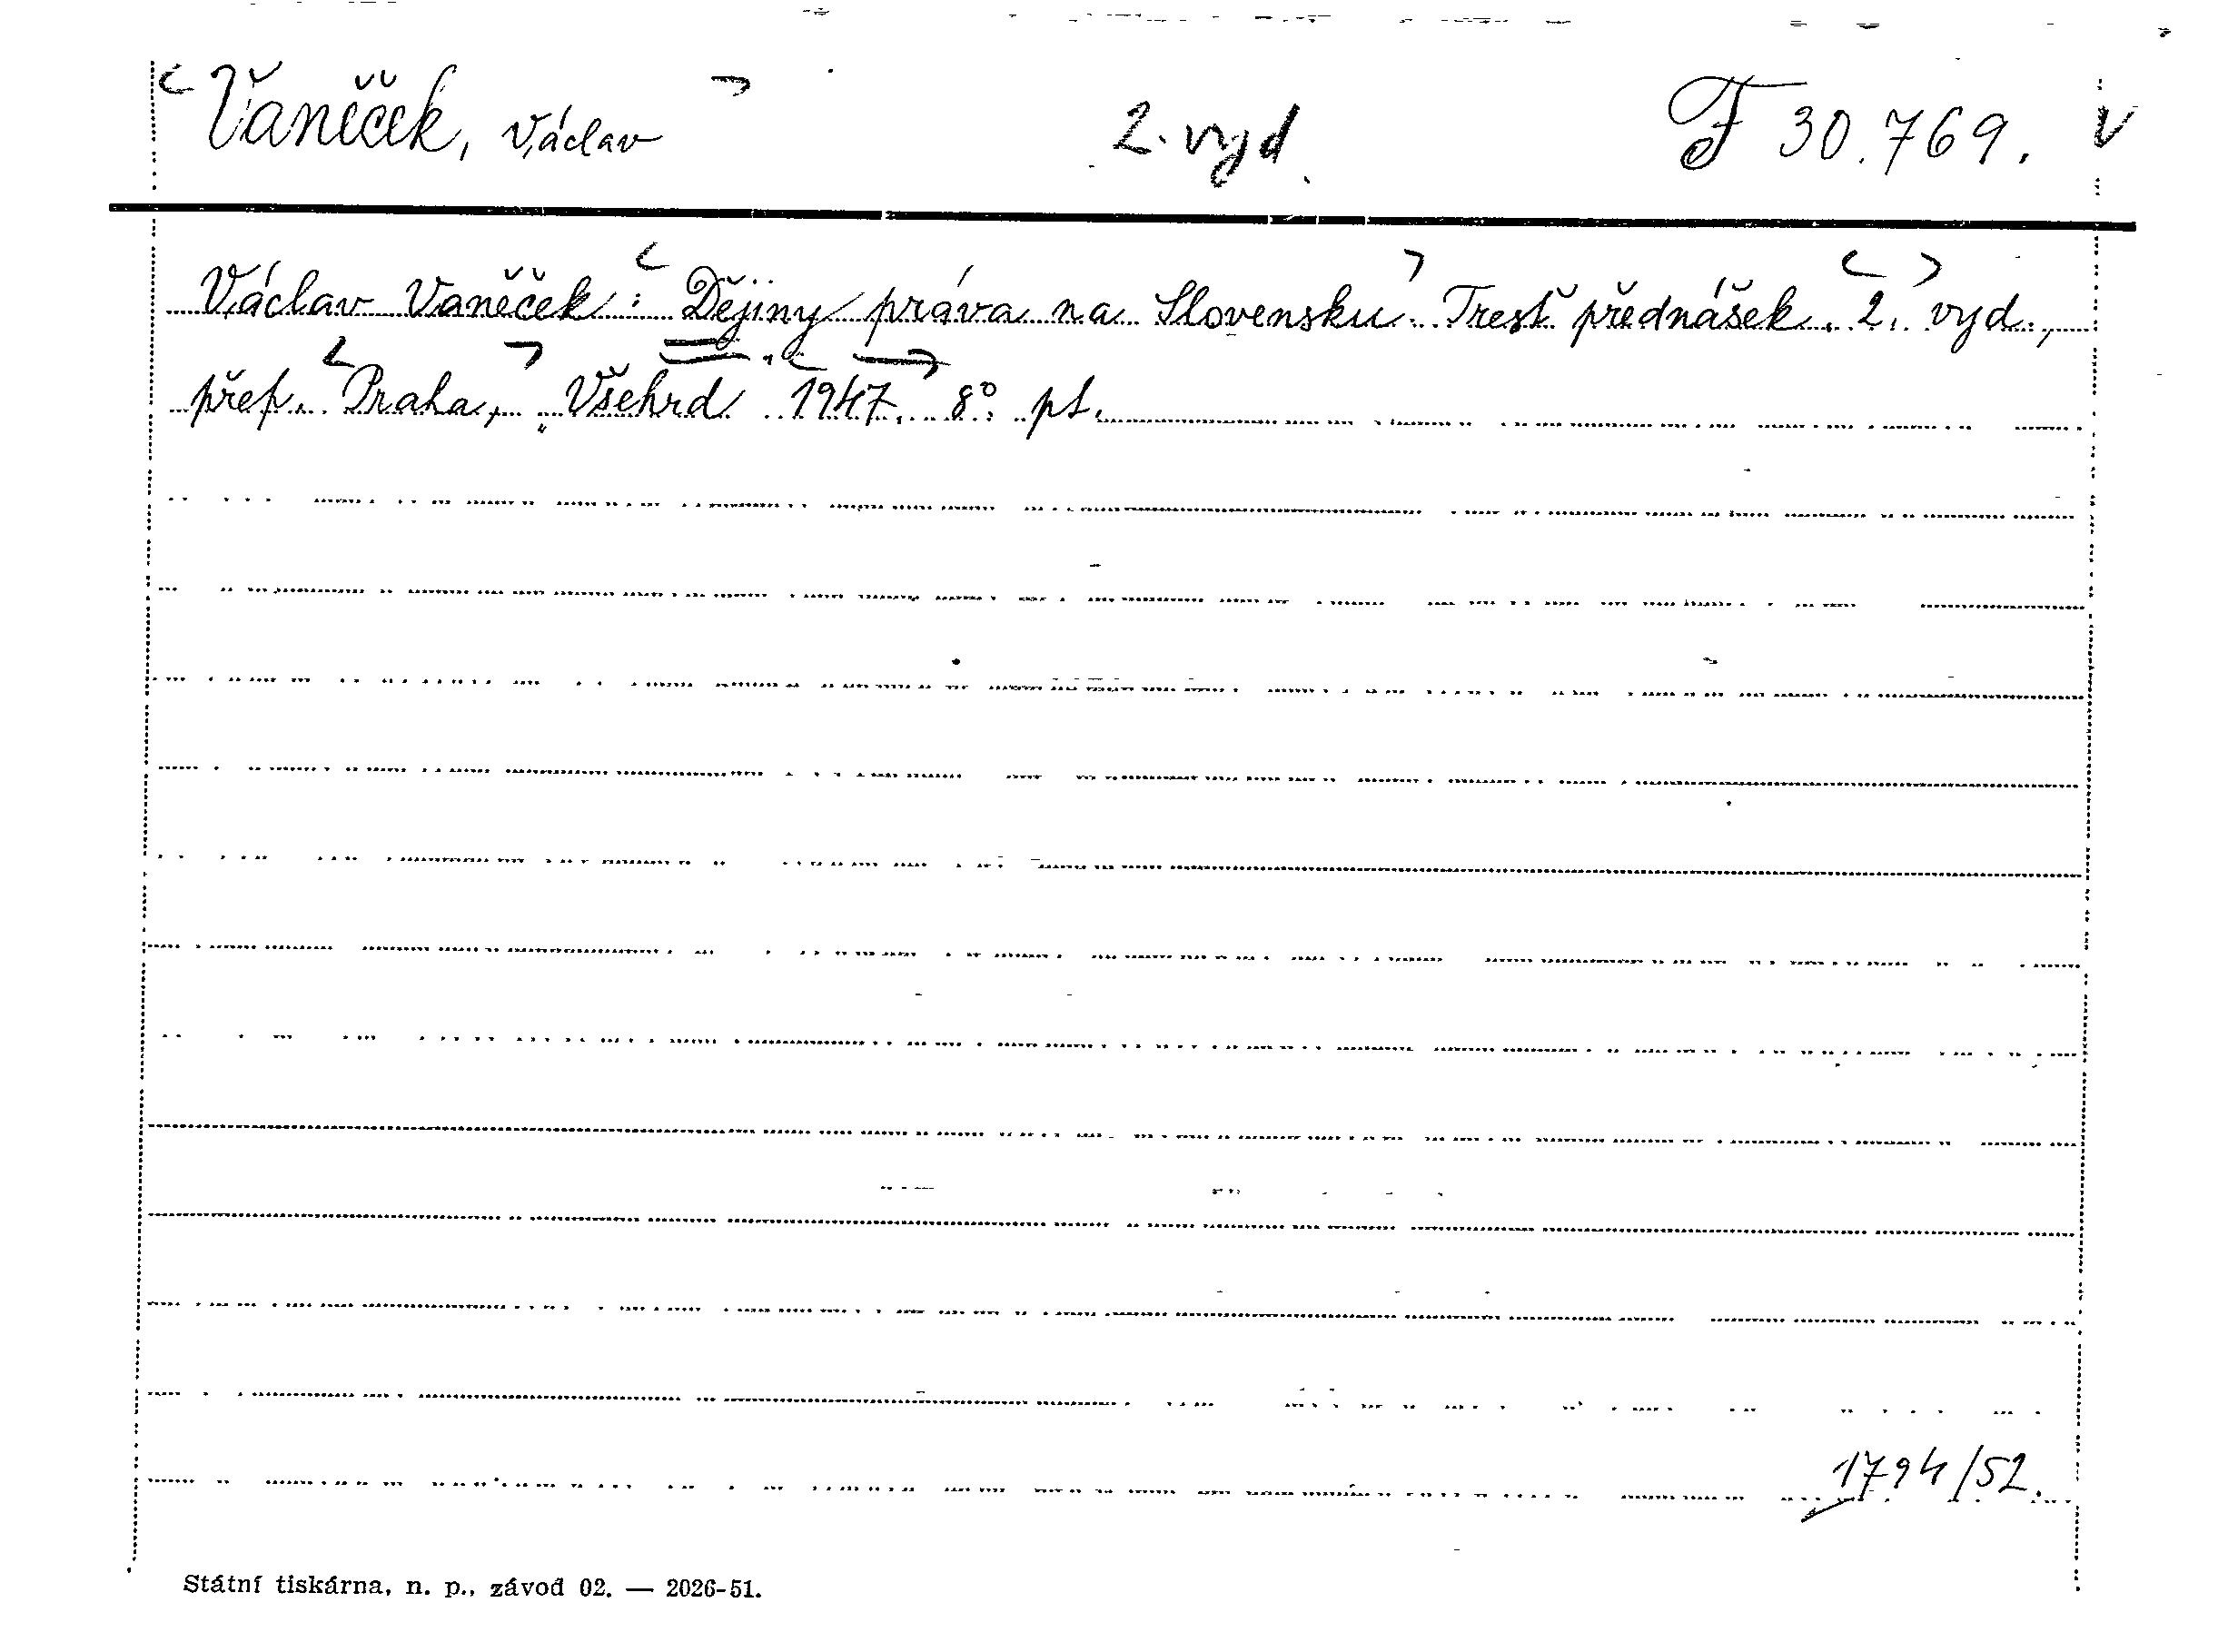 Vaněček, Václav 2. vyd. F 30.769. V
Václav Vaněček: Dějiny práva na Slovensku. Tresť přednášek. 2. vyd.,
přep. Praha, „Všehrd" 1947. 8°. pt.
1794/52.
Státní tiskárna, n. p., závod 02. — 2026-51.